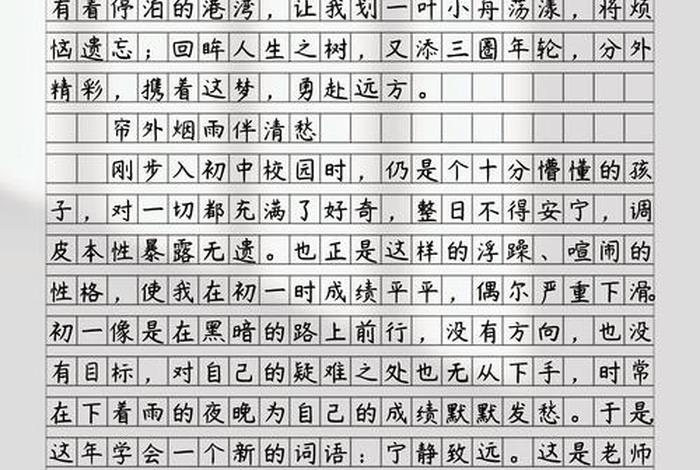 有着停泊的港湾，让我划一叶小舟荡漾，将烦
恼遗忘；回眸人生之树，又添三圈年轮，分外
精彩，携着这梦，勇赴远方。
帘外烟雨伴清愁
刚步入初中校园时，仍是个十分懵懂的孩
子，对一切都充满了好奇，整日不得安宁，调
皮本性暴露无遗。也正是这样的浮躁、喧闹的
性格，使我在初一时成绩平平，偶尔严重下滑。
初一像是在黑暗的路上前行，没有方向，也没
有目标，对自己的疑难之处也无从下手，时常
在下着雨的夜晚为自己的成绩默默发愁。于是，
这年学会一个新的词语：宁静致远。这是老师